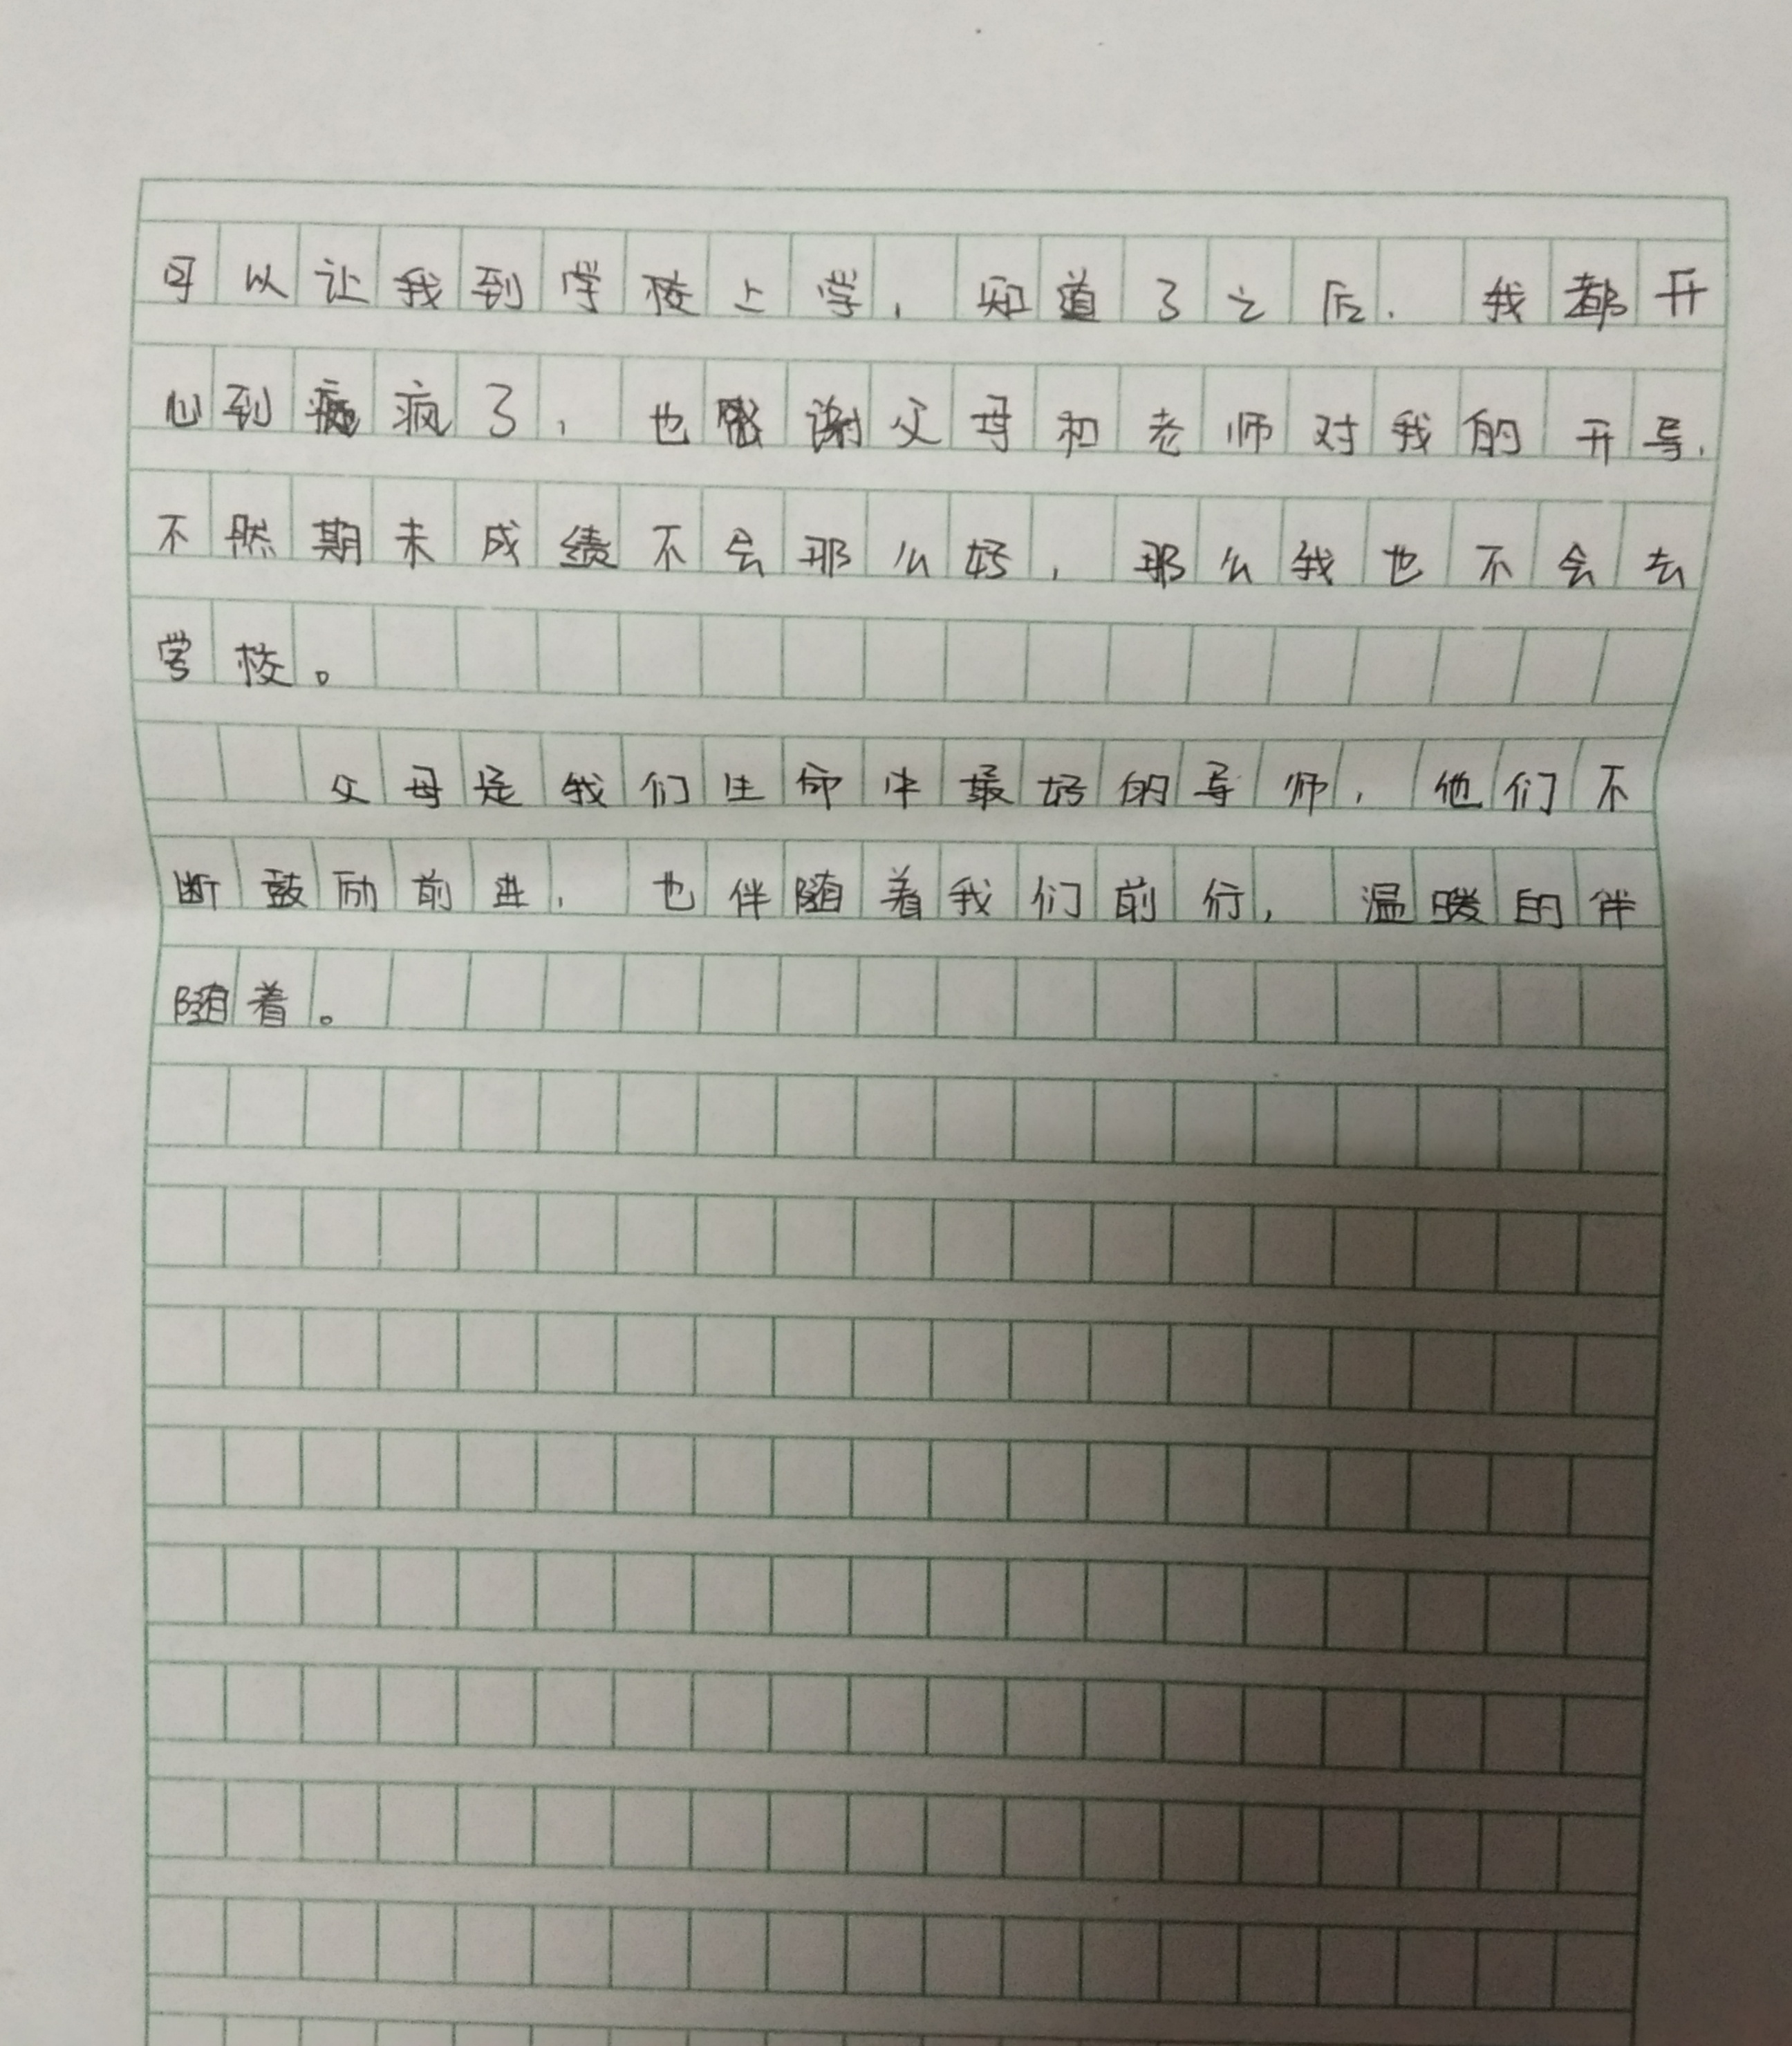 可以让我到学校上学，知道了之后，我都开
心到疯了，也感谢父母和老师对我的开导，
不然期末成绩不会那么好，那么我也不会去
学校。
父母是我们生命中最好的导师，他们不
断鼓励前进，也伴随着我们前行，温暖的伴
随着。